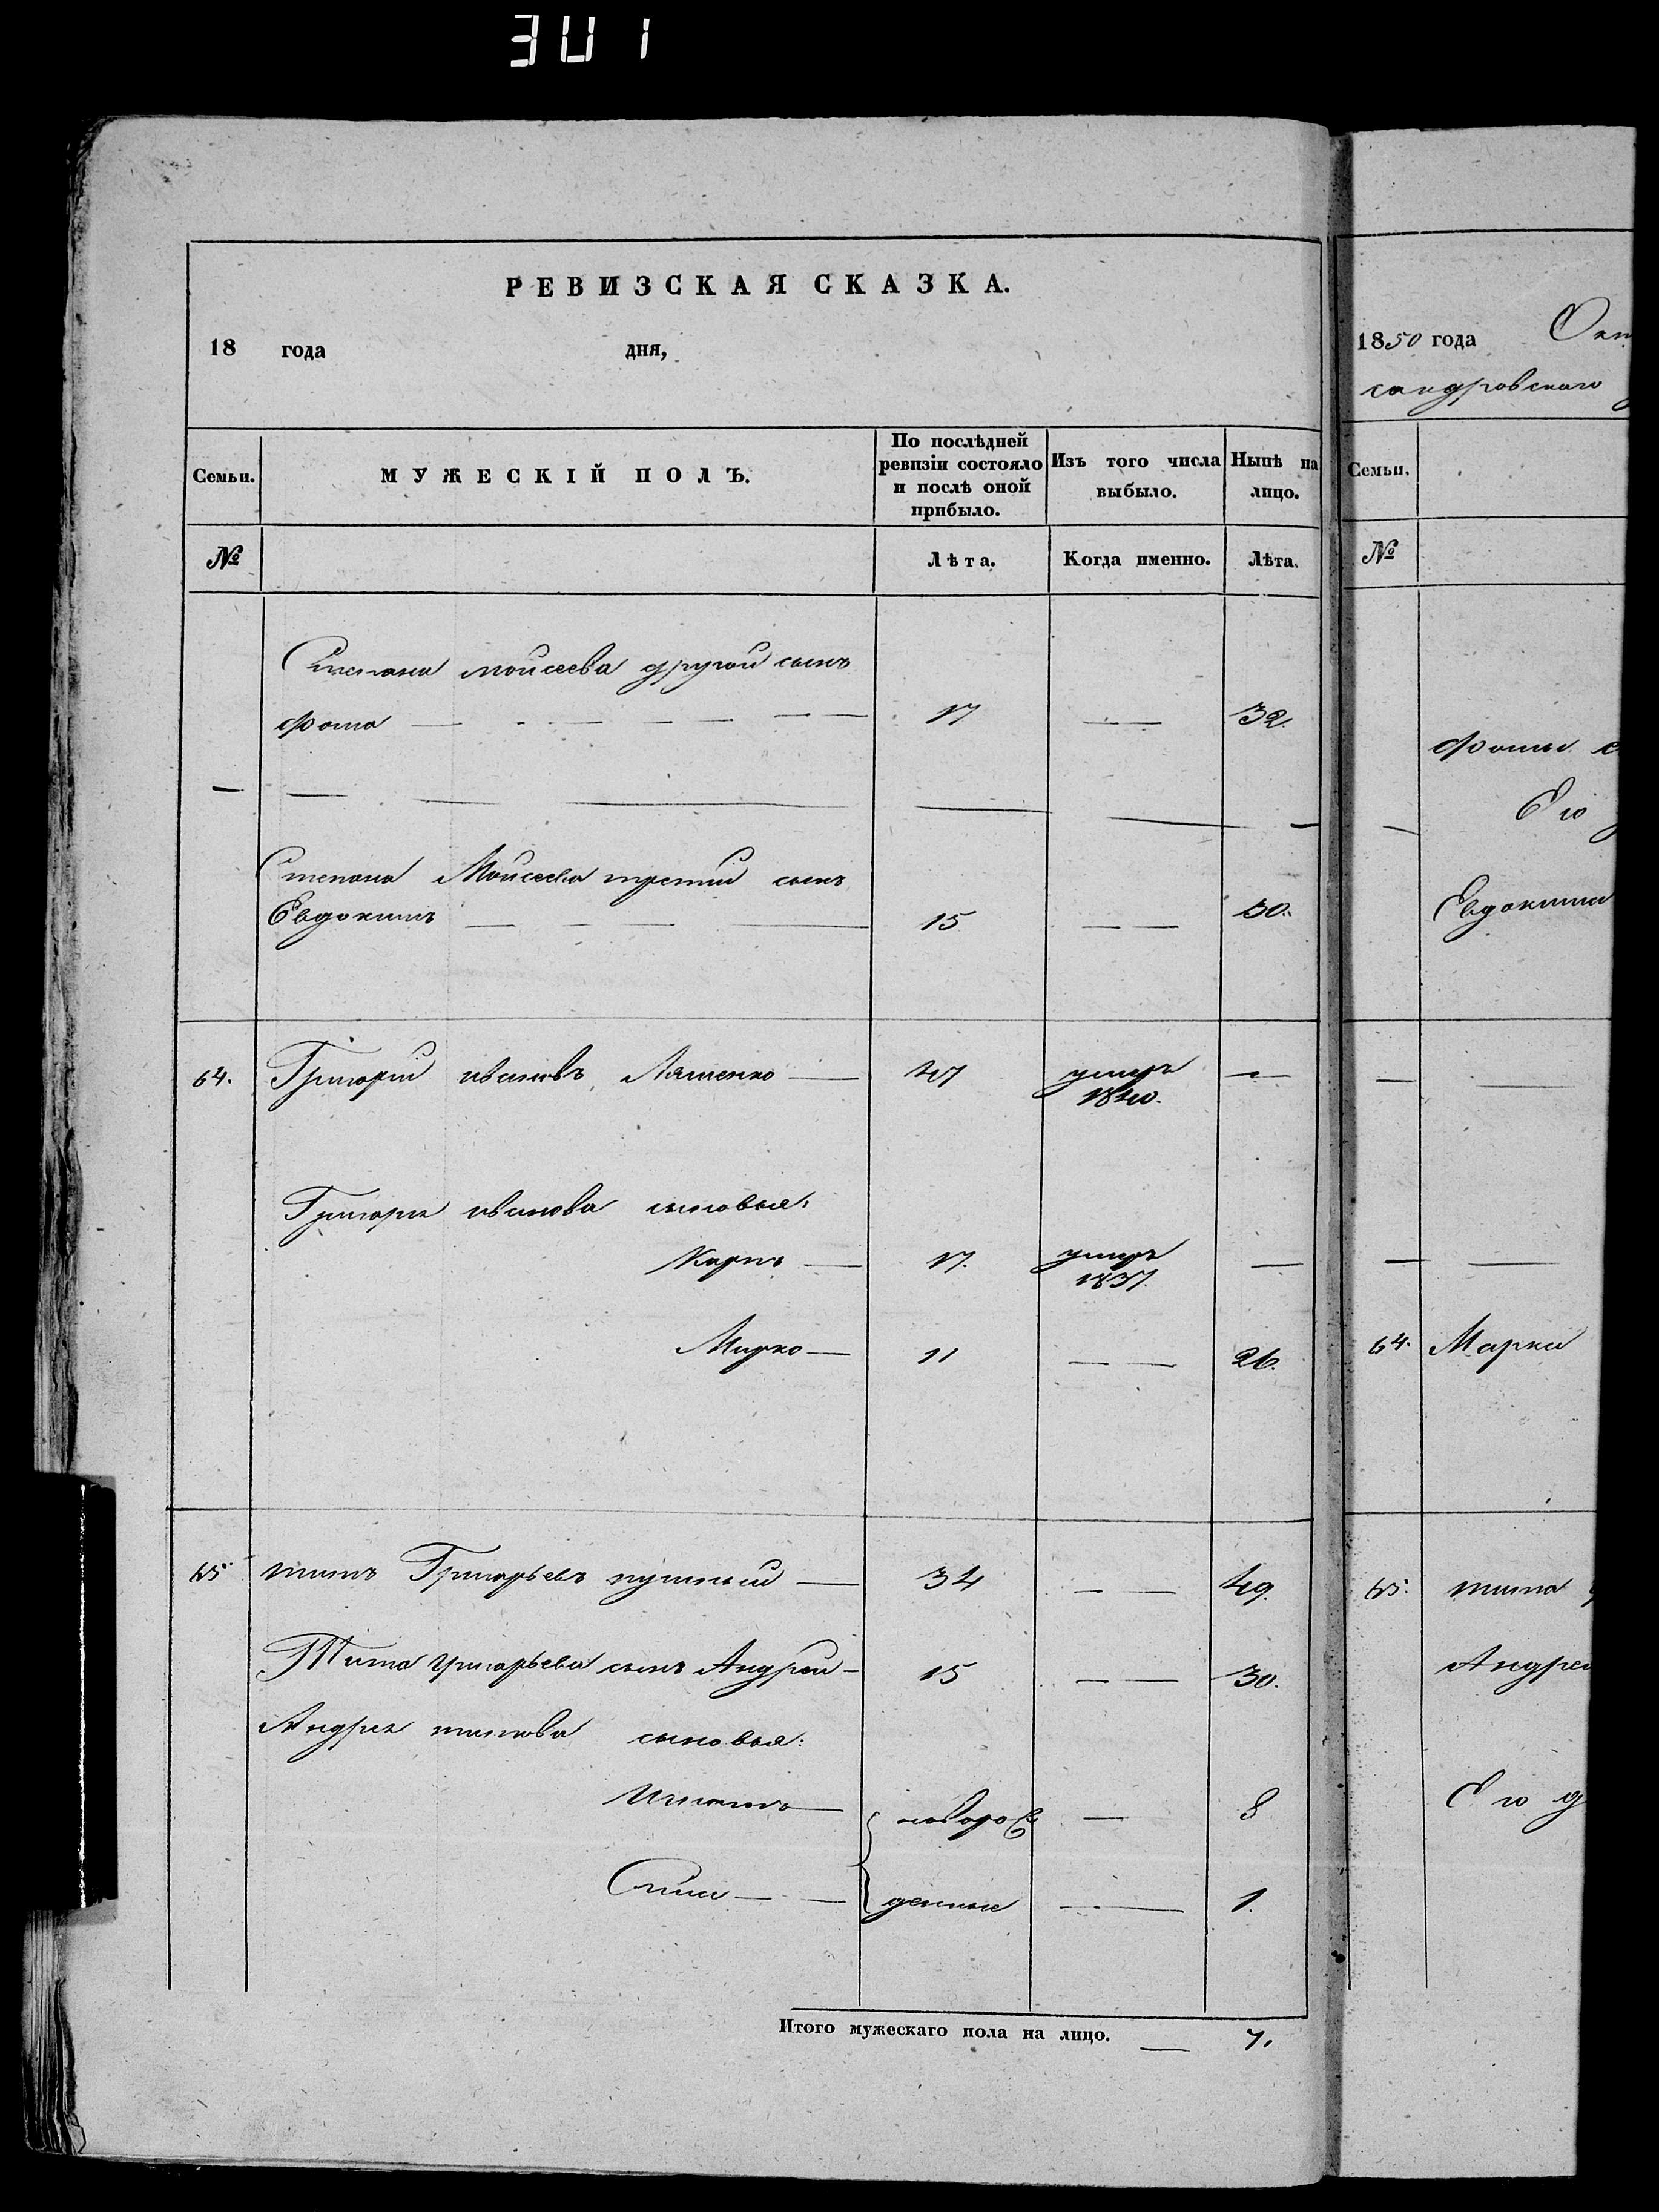 301
РЕВИЗСКАЯ СКАЗКА.
18 года дня,
Семьи. МУЖЕСКІЙ ПОЛЪ. По послѣдней ревизіи состояло и послѣ оной прибыло. Изъ того числа выбыло. Нынѣ на лицо.
№ Лѣта. Когда именно. Лѣта.
Степана Моисеева другой сынъ
Фома — 17 — 32.
Степана Моисеева третий сынъ
Евдокимъ — 15 — 30.
64. Григорий Ивановъ Ляшенко — 47 умеръ —
1840.
Григорья Иванова сыновья:
Карпъ — 17. умеръ —
1837.
Марко — 11 — 26.
65 Титъ Григорьевъ — 34 — 49.
Тита Григорьева сынъ Андрей — 15 — 30.
Андрея Титова сыновья:
Игнатъ — новорож — 8
денные — 1.
Итого мужескаго пола на лицо. — 7.
1850 года Окт
сандровскаго
Семьи.
№
Фомы
Его
Евдокима
64. Марка
65. Тита
Андрея
Его